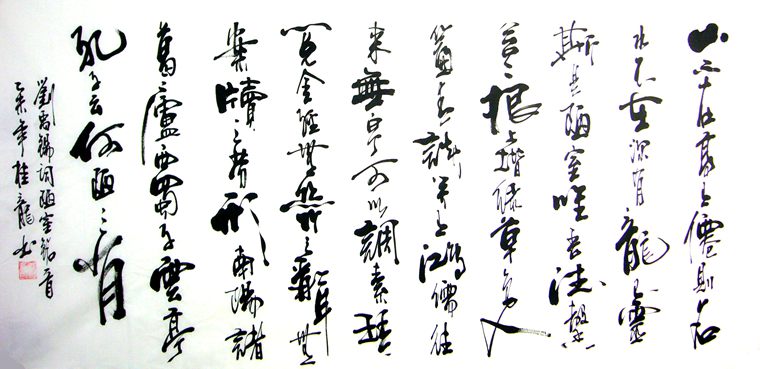 山不在高有僊則名
水不在深有龍則靈
斯是陋室唯吾德馨
苔痕上階綠草色入
簾青談笑有鴻儒往
來無白丁可以調素琴
閱金經無絲竹之亂耳無
案牘之勞形南陽諸
葛廬西蜀子雲亭
孔子云何陋之有
劉禹錫詞陋室銘一首
乙未年桂龍書